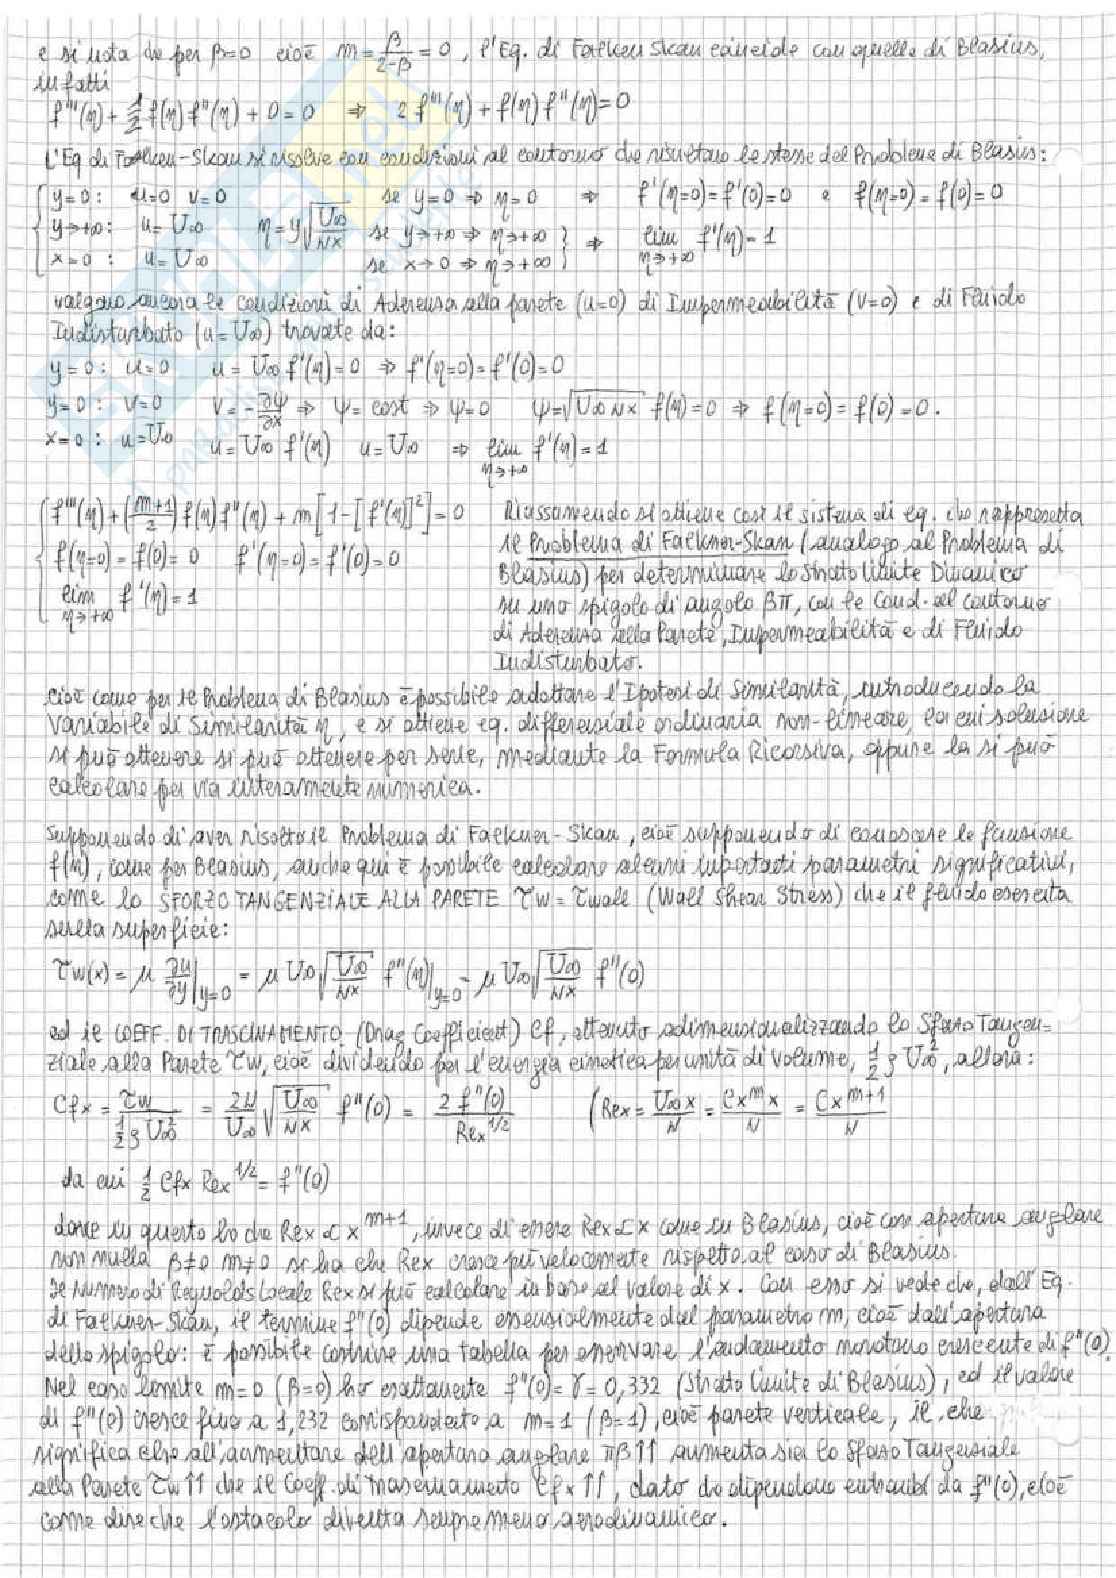 e si nota che per β=0 cioè m = β/(2-β) = 0, l'Eq. di Falken Skan coincide con quella di Blasius,
infatti
f'''(η) + 1/2 f(η) f''(η) + 0 = 0 ⇒ 2 f'''(η) + f(η) f''(η) = 0
L'Eq di Falken-Skan si risolve con condizioni al contorno che risultano le stesse del Problema di Blasius:
y=0 : u=0 v=0 se y=0 ⇒ η=0 ⇒ f'(η=0) = f'(0) = 0 e f(η=0) = f(0) = 0
y→+∞ : u = U∞ η = y√(U∞/νx) se y→+∞ ⇒ η→+∞ } ⇒ lim η→+∞ f'(η) = 1
x=0 : u = U∞ se x→0 ⇒ η→+∞ }
valgono ancora le condizioni di Aderenza alla parete (u=0) di Impermeabilità (v=0) e di Fluido
Indisturbato (u = U∞) trovate da:
y=0 : u=0 u = U∞ f'(η) = 0 ⇒ f'(η=0) = f'(0) = 0
y=0 : v=0 v = -∂ψ/∂x ⇒ ψ = cost ⇒ ψ=0 ψ = √(U∞ νx) f(η) = 0 ⇒ f(η=0) = f(0) = 0.
x=0 : u=U∞ u = U∞ f'(η) u = U∞ ⇒ lim η→+∞ f'(η) = 1
f'''(η) + ((m+1)/2) f(η) f''(η) + m [1-[f'(η)]²] = 0 Riassumendo si ottiene così il sistema di eq. che rappresenta
f(η=0) = f(0) = 0 f'(η=0) = f'(0) = 0 il Problema di Falkner-Skan (analogo al Problema di
lim η→+∞ f'(η) = 1 Blasius) per determinare lo Strato Limite Dinamico
su uno spigolo di angolo βπ, con le Cond. al contorno
di Aderenza alla Parete, Impermeabilità e di Fluido
Indisturbato.
Cioè come per il Problema di Blasius è possibile adottare l'Ipotesi di Similarità, introducendo la
Variabile di Similarità η, e si ottiene eq. differenziale ordinaria non-lineare, la cui soluzione
si può ottenere si può ottenere per serie, mediante la Formula Ricorsiva, oppure la si può
calcolare per via interamente numerica.
Supponendo di aver risolto il Problema di Falkner-Skan, cioè supponendo di conoscere la funzione
f(η), come per Blasius, anche qui è possibile calcolare alcuni importanti parametri significativi,
come lo SFORZO TANGENZIALE ALLA PARETE τw = τwall (Wall Shear Stress) che il fluido esercita
sulla superficie:
τw(x) = μ ∂u/∂y|y=0 = μ U∞ √(U∞/νx) f''(η)|y=0 = μ U∞ √(U∞/νx) f''(0)
ed il COEFF. DI TRASCINAMENTO (Drag Coefficient) Cf, ottenuto adimensionalizzando lo Sforzo Tangen=
ziale alla Parete τw, cioè dividendo per l'energia cinetica per unità di volume, 1/2 ρ U∞², allora:
Cfx = τw/(1/2 ρ U∞²) = 2ν/U∞ √(U∞/νx) f''(0) = 2 f''(0)/Rex^1/2 (Rex = U∞x/ν = Cx^m x/ν = Cx^m+1/ν
da cui 1/2 Cfx Rex^1/2 = f''(0)
dove in questo ho che Rex ∝ x^m+1, invece di essere Rex ∝ x come in Blasius, cioè con apertura angolare
non nulla β≠0 m≠0 si ha che Rex cresce più velocemente rispetto al caso di Blasius.
Il Numero di Reynolds Locale Rex si può calcolare in base al valore di x. Con esso si vede che, dall'Eq.
di Falkner-Skan, il termine f''(0) dipende essenzialmente dal parametro m, cioè dall'apertura
dello spigolo: è possibile costruire una tabella per osservare l'andamento monotono crescente di f''(0).
Nel caso limite m=0 (β=0) ho esattamente f''(0) = γ = 0,332 (Strato Limite di Blasius), ed il valore
di f''(0) cresce fino a 1,232 corrispondente a m=1 (β=1), cioè parete verticale, il che
significa che all'aumentare dell'apertura angolare πβ ↑↑ aumenta sia lo Sforzo Tangenziale
alla Parete τw ↑↑ che il Coeff. di Trascinamento Cfx ↑↑, dato che dipendono entrambi da f''(0), cioè
come dire che l'ostacolo diventa sempre meno aerodinamico.